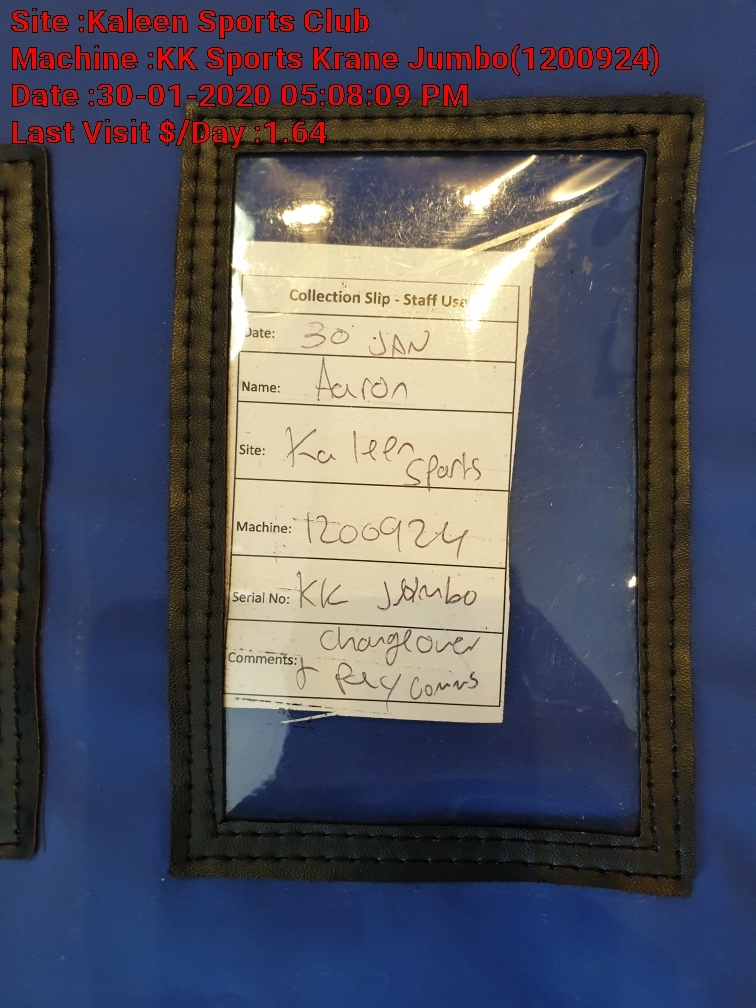 Site :Kaleen Sports Club
Machine :KK Sports Krane Jumbo(1200924)
Date :30-01-2020 05:08:09 PM
Last Visit $/Day :1.64
Collection Slip - Staff Use
Date: 30 JAN
Name: Aaron
Site: Kaleen
Sports
Machine: 1200924
Serial No: KK Jumbo
changeover
Comments: + Pay Comms